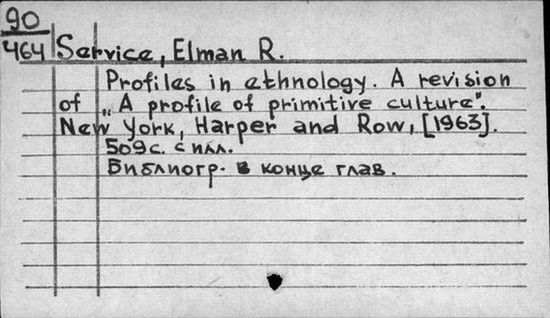 90
464
Service, Elman R.
Profiles in ethnology. A revision
of „A profile of primitive culture".
New York, Harper and Row, [1963].
509 с. с илл.
Библиогр. в конце глав.